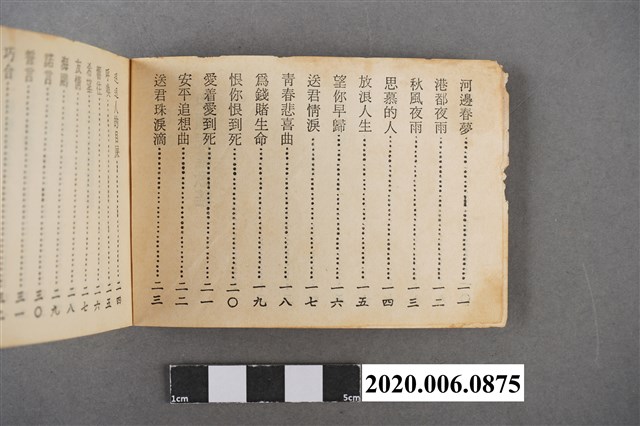 河邊春夢 一一
港都夜雨 一二
秋風夜雨 一三
思慕的人 一四
放浪人生 一五
望你早歸 一六
送君情淚 一七
靑春悲喜曲 一八
爲錢賭生命 一九
恨你恨到死 二〇
愛着愛到死 二一
安平追想曲 二二
送君珠淚滴 二三
二四
二五
二六
二七
友情 二八
二九
諾言 三〇
誓言 三一
巧合
1cm 5cm
2020.006.0875